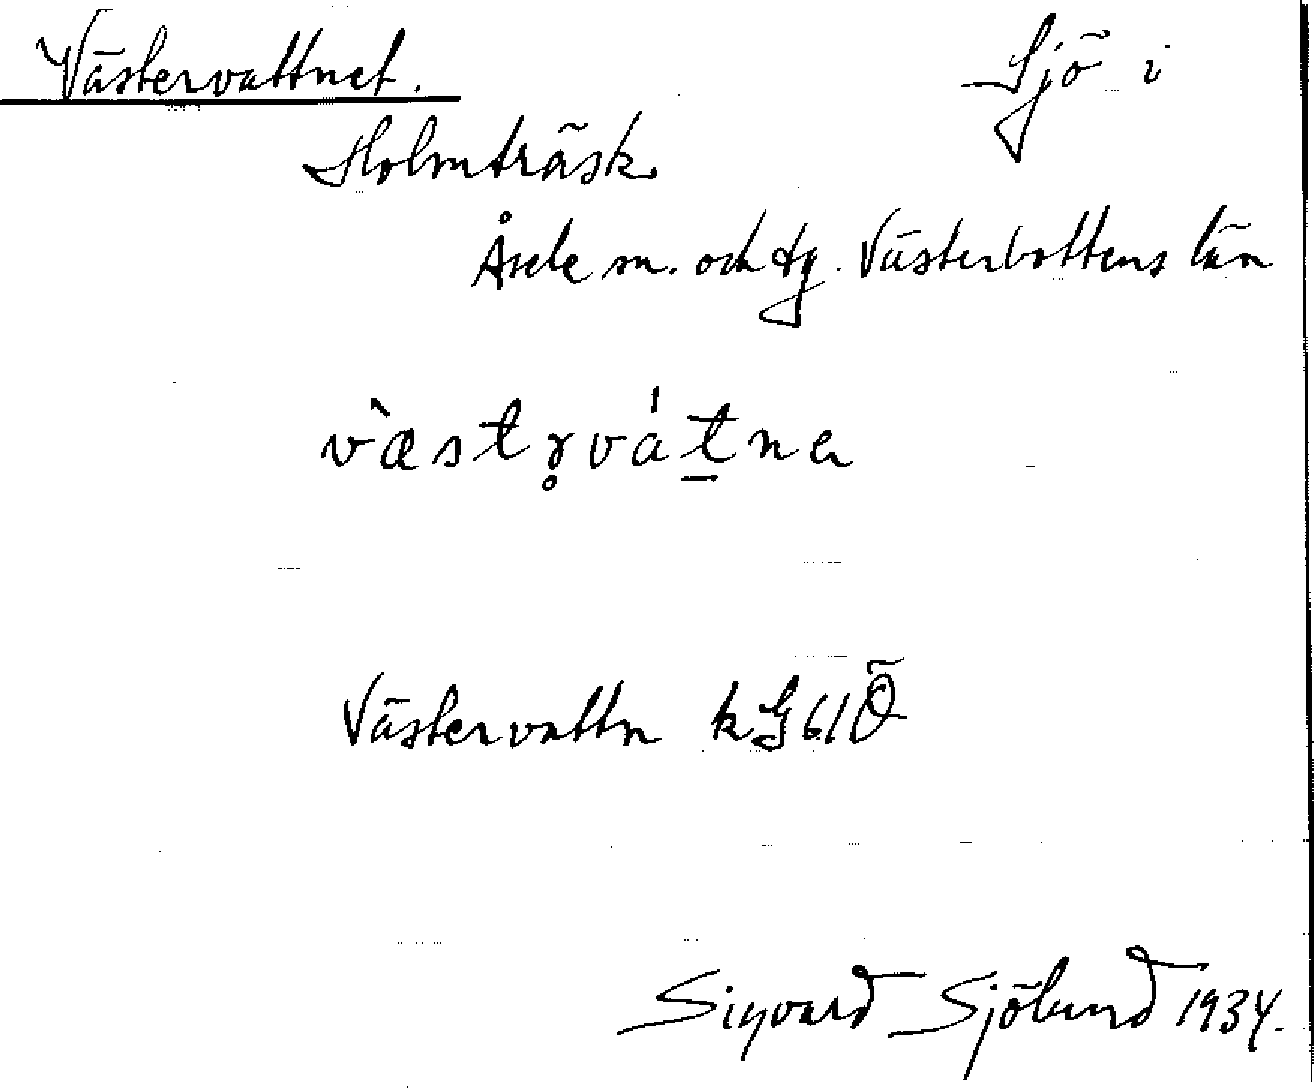 Västervattnet. Sjö i
Holmträsk
Åsele sn. och tg. Västerbottens län
v̀æstr̥vát̠nɐ
Västervattn kG61Ö
Sigvard Sjölund 1934.